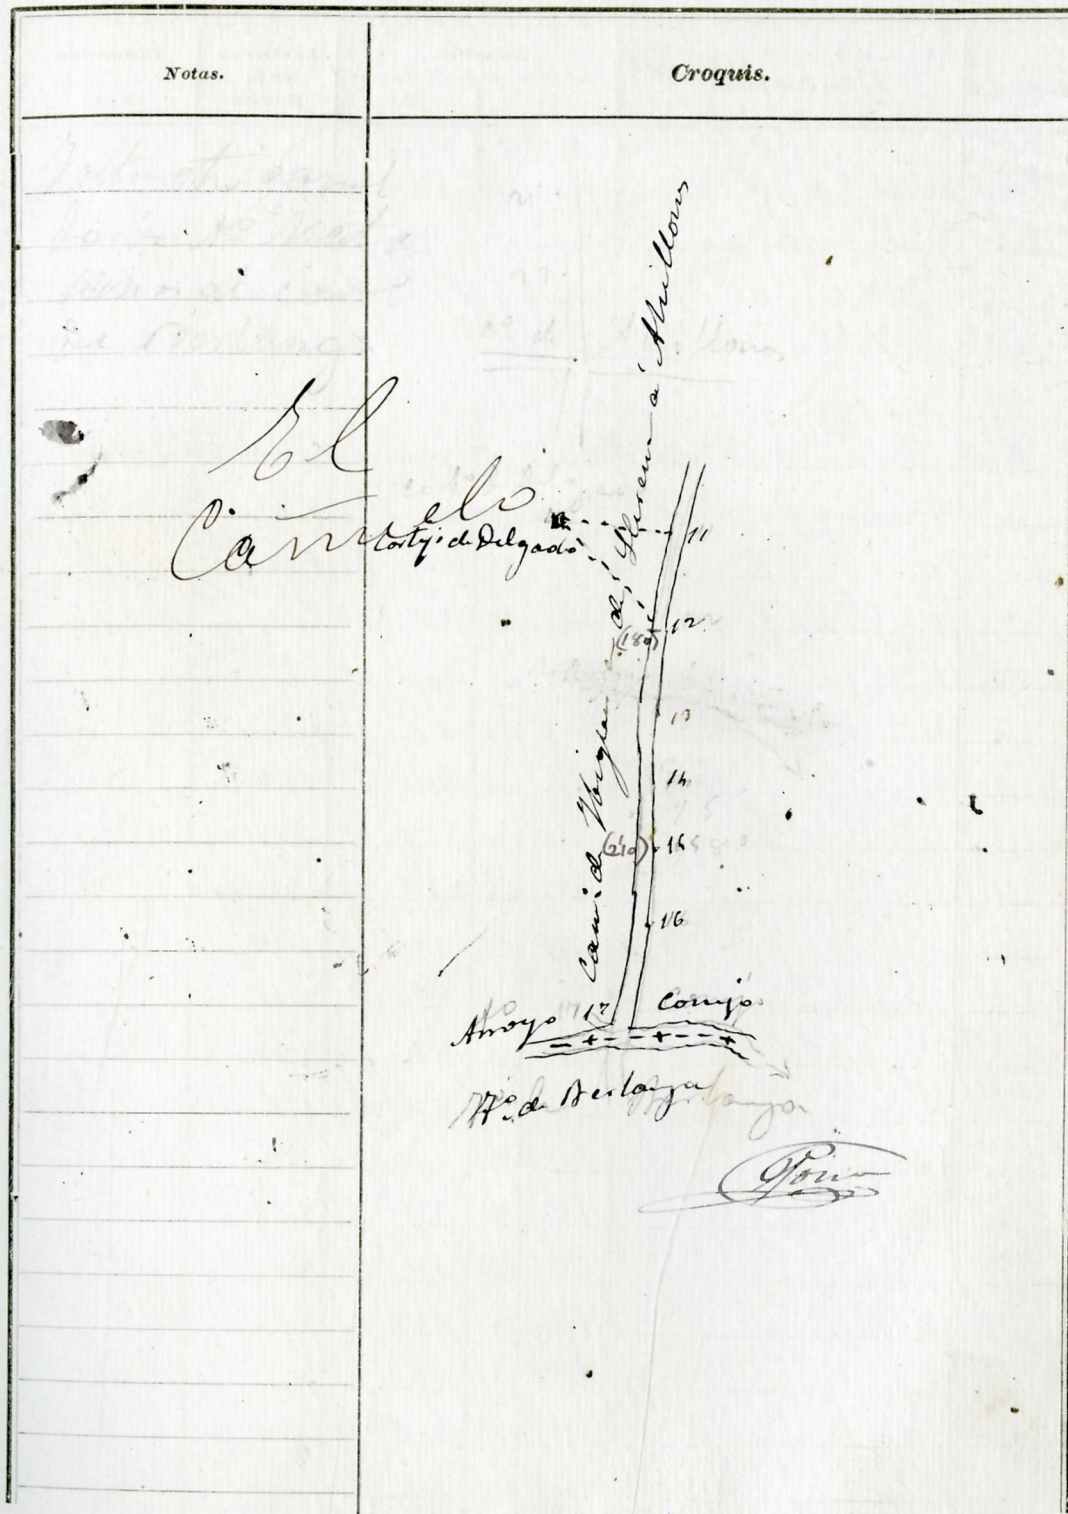 Notas.
Croquis.
El
Cañuelo
Cortijo de Delgado
Camº de Higuera de Llerena á Ahillones
11
12
(180)
13
14
(210)
15
16
17
Arroyo
Cornejo
Tº de Berlanga